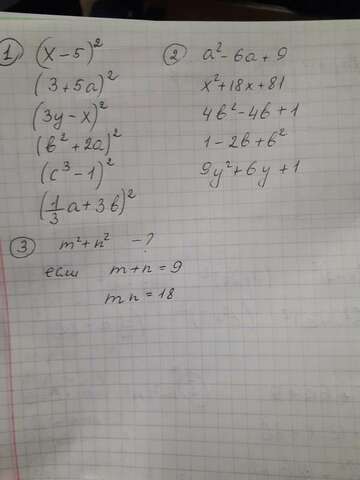 ① (x-5)²
(3+5a)²
(3y-x)²
(в²+2a)²
(c³-1)²
(1/3 a+3в)²
② a²-6a+9
x²+18x+81
4в²-4в+1
1-2в+в²
9y²+6y+1
③ m²+n² -?
если m+n=9
mn=18